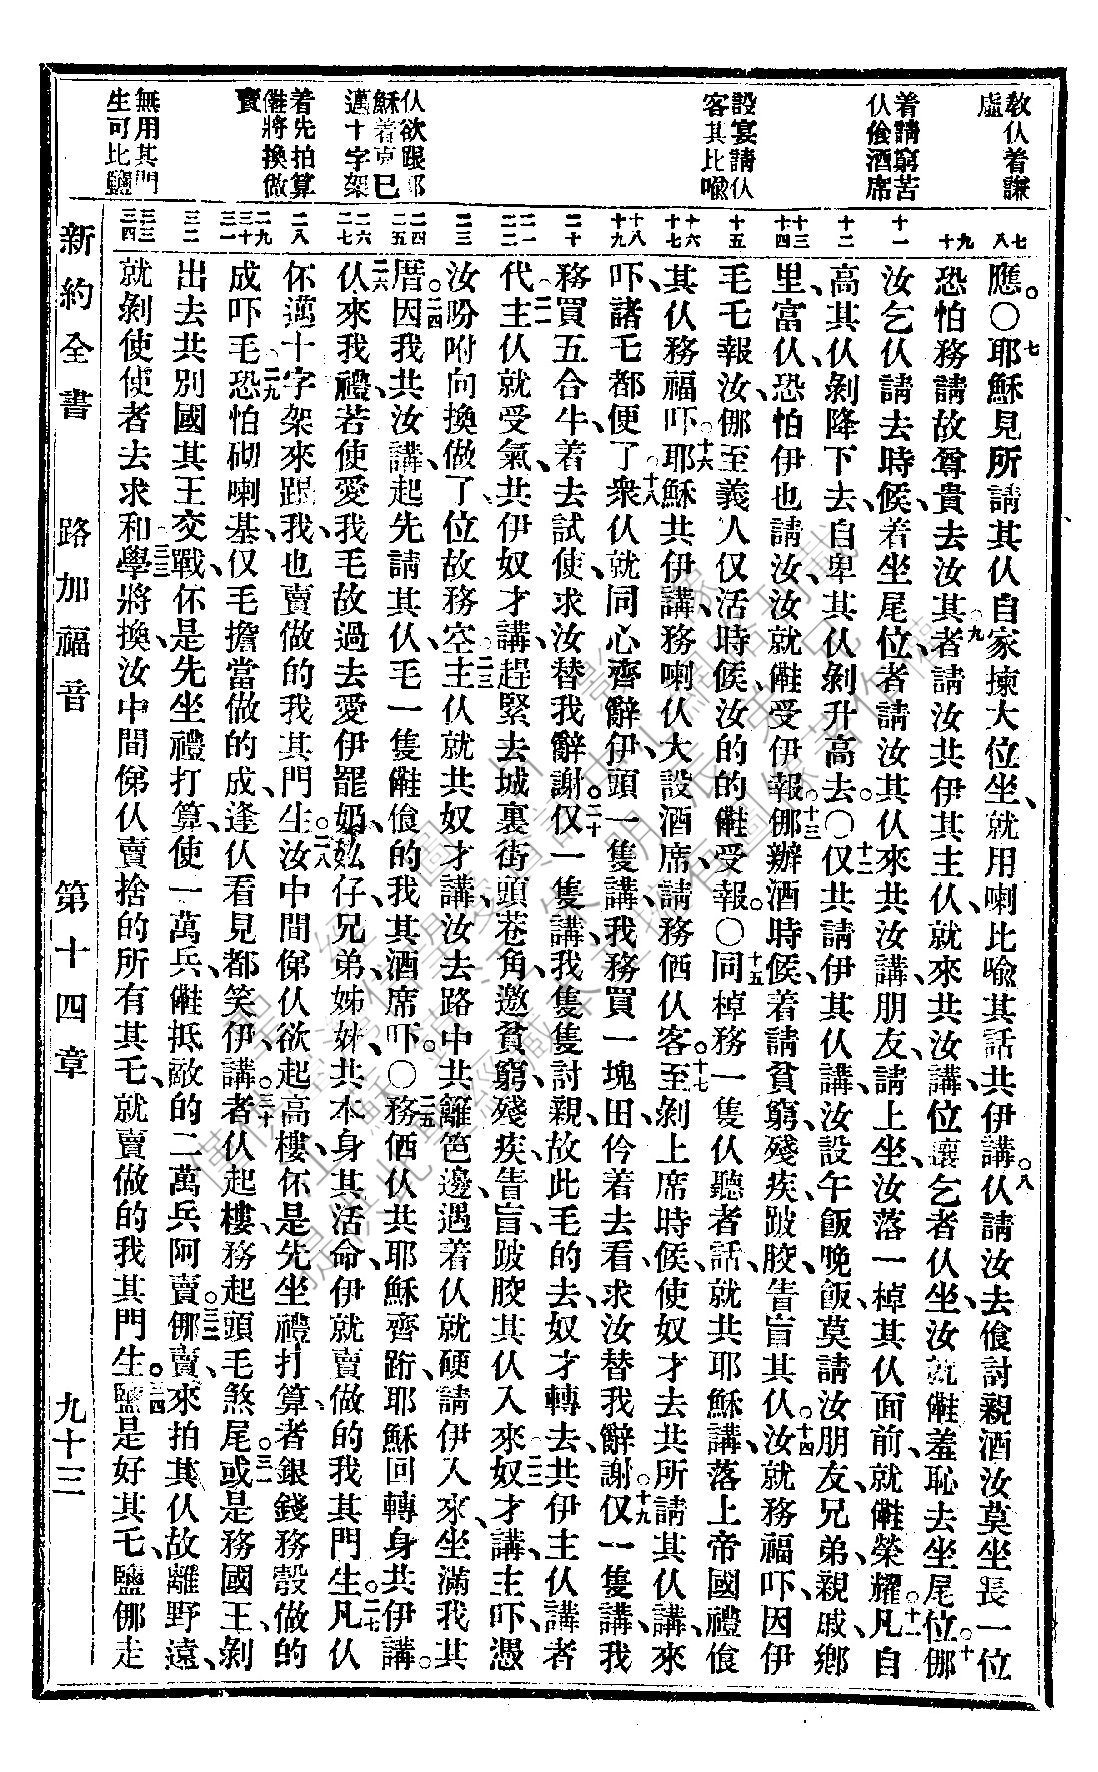 教仈着謙
虛
着請窮苦
仈飧酒席
設宴請仈
客其比喩
仈欲跟耶
穌着克己
邁十字架
着先拍算
𣍐將換做
賣
無用其門
生可比鹽
應。○七耶穌見所請其仈自家揀大位坐、就用喇比喩其話共伊講。八仈請汝去飧討親酒汝莫坐長一位
恐怕務請故尊貴去汝其者、九請汝共伊其主仈、就來共汝講、位讓乞者仈坐、汝就𣍐羞恥去坐尾位。十挪
汝乞仈請去時候、着坐尾位、者請汝其仈來共汝講、朋友、請上坐、汝落一棹其仈面前、就𣍐榮耀。十一凡自
高其仈剝降下去、自卑其仈剝升高去。○十二仅共請伊其仈講、汝設午飯晚飯、莫請汝朋友、兄弟、親戚、鄉
里、富仈、恐怕伊也請汝、汝就𣍐受伊報。十三挪辦酒時候、着請貧窮、殘疾、跛胶、眚盲其仈。十四汝就務福吓、因伊
毛乇報汝、挪至義人仅活時候、汝的的𣍐受報。○十五同棹務一隻仈聽者話、就共耶穌講、落上帝國禮飧
其仈務福吓。十六耶穌共伊講、務喇仈大設酒席、請務俩仈客。十七至剝上席時候、使奴才去共所請其仈講、來
吓、諸乇都便了。十八衆仈就同心齊辭伊、頭一隻講、我務買一塊田、伱着去看、求汝替我辭謝。十九仅一隻講、我
務買五合牛、着去試使、求汝替我辭謝。二十仅一隻講、我隻隻討親、故此毛的去。二一奴才轉去、共伊主仈講、者
代、主仈就受氣、共伊奴才講、趕緊去城裏街頭巷角、邀貧窮、殘疾、眚盲、跛胶其仈入來。二二奴才講、主吓、憑
汝吩咐向換做了、位故務空。二三主仈就共奴才講、汝去路中共籬笆邊、遇着仈就硬請伊入來、坐滿我其
厝。二四因我共汝講、起先請其仈、毛一隻𣍐飧的我其酒席吓。○二五務俩仈共耶穌齊跴、耶穌回轉身共伊講。
二六仈來我禮、若使愛我毛故過去愛伊罷、奶、㚢仔、兄弟、姊妹、共本身其活命、伊就賣做的我其門生。二七凡仈
伓邁十字架來跟我、也賣做的我其門生。二八汝中間俤仈欲起高樓、伓是先坐禮打算者銀錢務彀做的
成吓毛。二九恐怕砌喇基、仅毛擔當做的成、逢仈看見都笑伊、講。三十者仈起樓、務起頭毛煞尾。三一或是務國王、剝
出去共別國其王交戰、伓是先坐禮打算、使一萬兵、𣍐抵敵的二萬兵阿賣。三二挪賣、來拍其仈故離野遠、
就剝使使者去求和。三三學將換、汝中間俤仈賣捨的所有其乇、就賣做的我其門生。三四鹽是好其乇、鹽挪走
七
八
九
十
十一
十二
十三
十四
十五
十六
十七
十八
十九
二十
二一
二二
二三
二四
二五
二六
二七
二八
二九
三十
三一
三二
三三
三四
新約全書　路加福音　第十四章　九十三